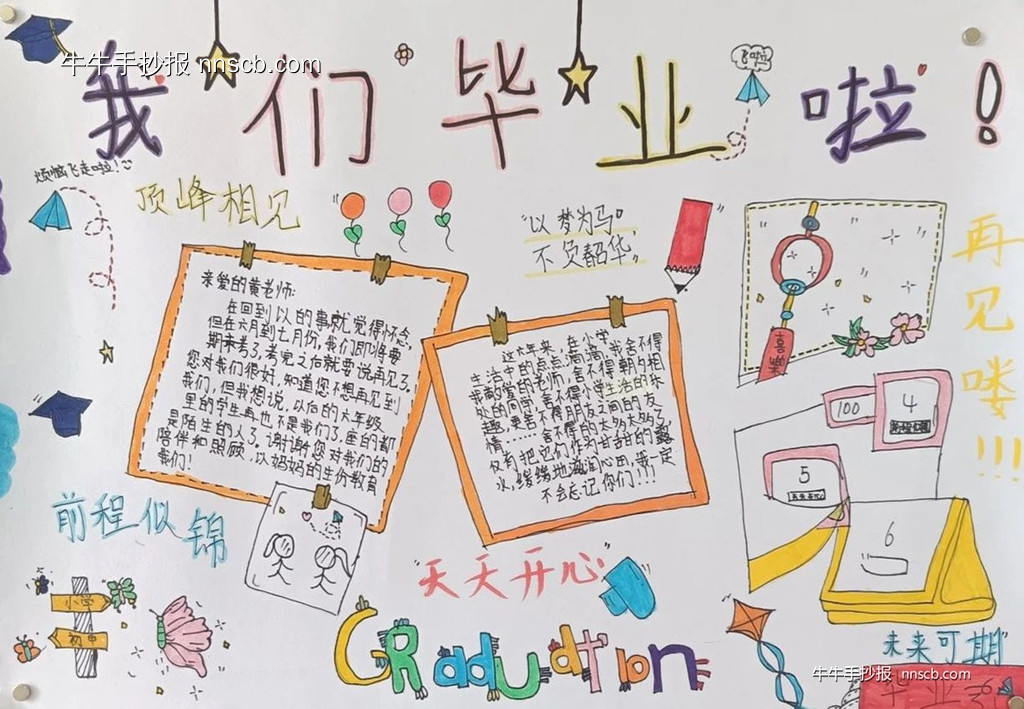 牛牛手抄报 nnscb.com
我们毕业啦!
飞啦
烦恼飞走啦!
顶峰相见
"以梦为马
不负韶华"
亲爱的黄老师:
在回到以的事就觉得怀念,
但在六月到七月份,我们即将要
期末考了,考完之后就要说再见了,
您对我们很好,知道您不想再见到
我们,但我想说,以后的六年级
里的学生再也不是我们了,座的都
是陌生的人了,谢谢您对我们的
陪伴和照顾,以妈妈的生份教育
我们!
这六年来,在小学
生活中的点点滴滴,我舍不得
我敬爱的老师,舍不得朝夕相
处的同学,舍不得小学生活的乐
趣,更舍不得朋友之间的友
情……舍不得的太多太多了,
仅有把它们作为甘甜的露
水,缓缓地滋润心田,我一定
不会忘记你们!!!
再见喽!!!
喜乐
100
4
5
天天开心
6
前程似锦
"天天开心"
小学
初中
Graduation
未来可期"
毕业
牛牛手抄报 nnscb.com